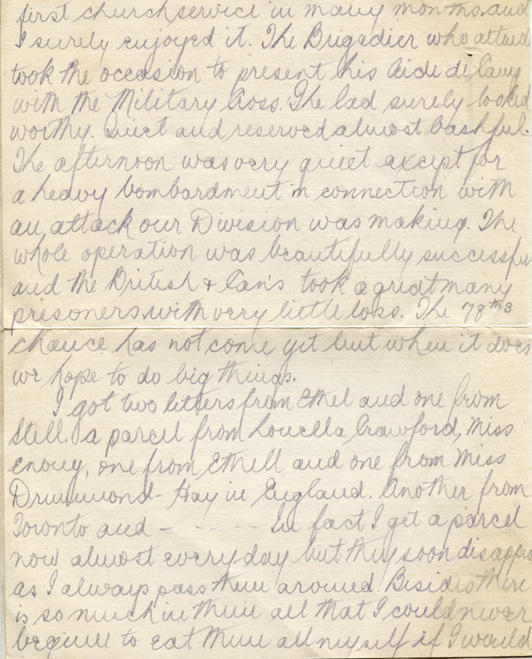 first church service in many months and
I surely enjoyed it. The Brigadier who attend
took the occasion to present his Aide di Camp
with the Military Cross. The lad surely looked
worthy. Quiet and reserved almost bashful.
The afternoon was very quiet except for
a heavy bombardment in connection with
an attack our Division was making. The
whole operation was beautifully successful
and the British & Can's took a great many
prisoners with very little loss. The 78ths
chance has not come yet but when it does
we hope to do big things.
I got two letters from Ethel and one from
Stell, a parcel from Louella Crawford, Miss
one from Ethell and one from Miss
Drummond-Hay in England. Another from
Toronto and - - - - - - In fact I get a parcel
now almost every day but they soon disappear
as I always pass them around. Besides there
is so much in them all that I could never
begin to eat them all myself if I would